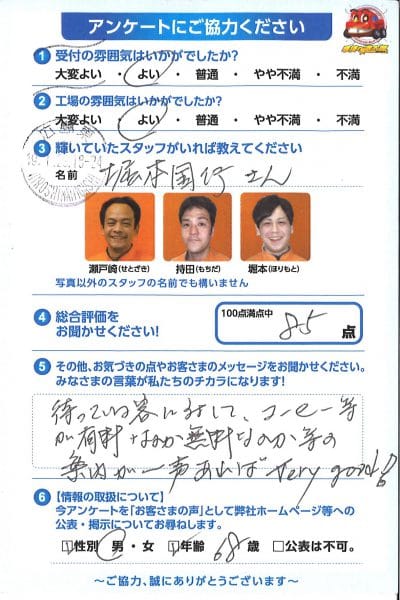 アンケートにご協力ください
1 受付の雰囲気はいかがでしたか?
大変よい ・ よい ・ 普通 ・ やや不満 ・ 不満
2 工場の雰囲気はいかがでしたか?
大変よい ・ よい ・ 普通 ・ やや不満 ・ 不満
3 輝いていたスタッフがいれば教えてください
名前 堀本国行さん
瀬戸崎(せとざき) 持田(もちだ) 堀本(ほりもと)
写真以外のスタッフの名前でも構いません
4 総合評価を
お聞かせください!
100点満点中
85 点
5 その他、お気づきの点やお客さまのメッセージをお聞かせください。
みなさまの言葉が私たちのチカラになります!
待っている客に対して、コーヒー等
が有料なのか無料なのか等の
案内が一声あればVery good!
6 【情報の取扱について】
今アンケートを「お客さまの声」として弊社ホームページ等への
公表・掲示についてお尋ねします。
性別 男・女 年齢 68 歳 □公表は不可。
～ご協力、誠にありがとうございます～